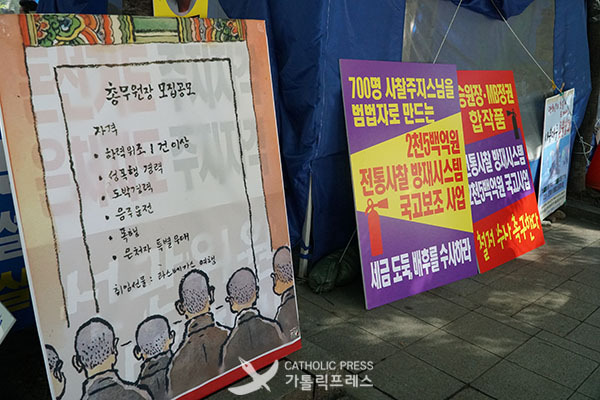 총무원장 모집공모
자격
· 학력위조 1건이상
· 성폭행 경력
· 도박경력
· 음주운전
· 폭행
· 은처자 특별우대
희망선물 : 라스베가스 여행
700명 사찰주지스님을
범법자로 만드는
2천5백억원
전통사찰 방재시스템
국고보조 사업
세금 도둑 배후를 수사하라
원장·MB정권
합작품
전통사찰 방재시스템
2천5백억원 국고사업
철저 수사 촉구한다
CATHOLIC PRESS
가톨릭프레스